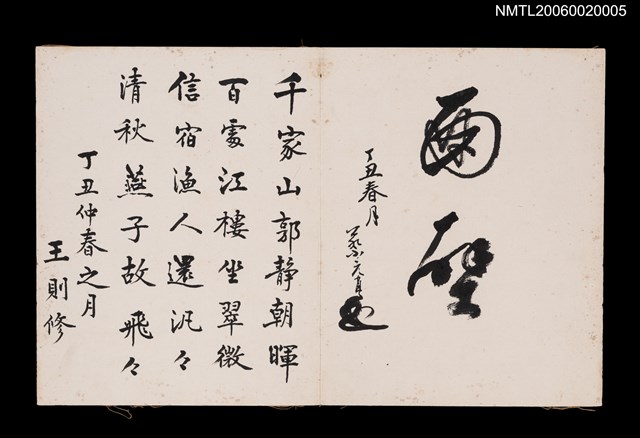 NMTL20060020005
丁丑春月
千家山郭靜朝暈
百處江樓坐翠微
信宿漁人還汎々
清秋燕子故飛々
丁丑仲春之月
王則修